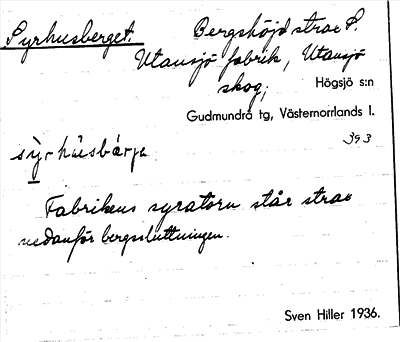 Syrhusberget. Bergshöjd strax S.
Utansjö fabrik, Utansjö
skog; Högsjö s:n
Gudmundrå tg, Västernorrlands l.
393
sỳrhúsbárjə
Fabrikens syratorn står strax
nedanför bergssluttningen.
Sven Hiller 1936.